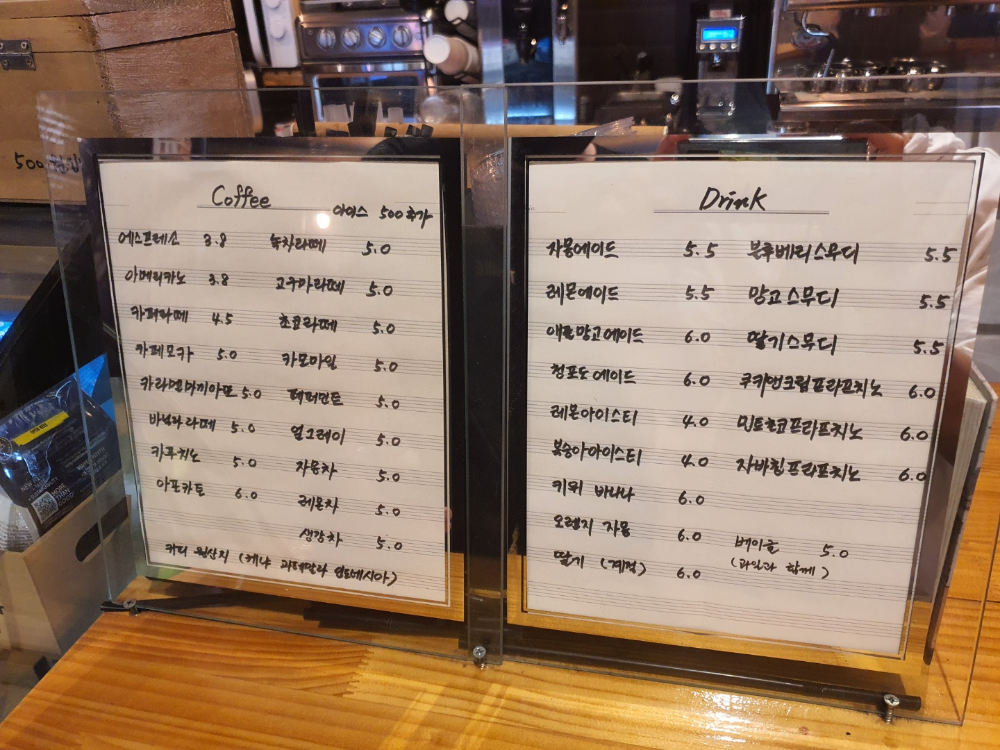 Coffee
아이스 500추가
에스프레소 3.8 녹차라떼 5.0
아메리카노 3.8 고구마라떼 5.0
카페라떼 4.5 초코라떼 5.0
카페모카 5.0 카모마일 5.0
카라멜마끼아또 5.0 페퍼민트 5.0
바닐라라떼 5.0 얼그레이 5.0
카푸치노 5.0 자몽차 5.0
아포카토 6.0 레몬차 5.0
생강차 5.0
커피 원산지 (케냐 과테말라 인도네시아)
Drink
자몽에이드 5.5 블루베리스무디 5.5
레몬에이드 5.5 망고스무디 5.5
애플망고에이드 6.0 딸기스무디 5.5
청포도에이드 6.0 쿠키앤크림프라프치노 6.0
레몬아이스티 4.0 민트초코프라프치노 6.0
복숭아아이스티 4.0 자바칩프라프치노 6.0
키위 바나나 6.0
오렌지 자몽 6.0 베이글 5.0
딸기 (계절) 6.0 (과일과 함께)